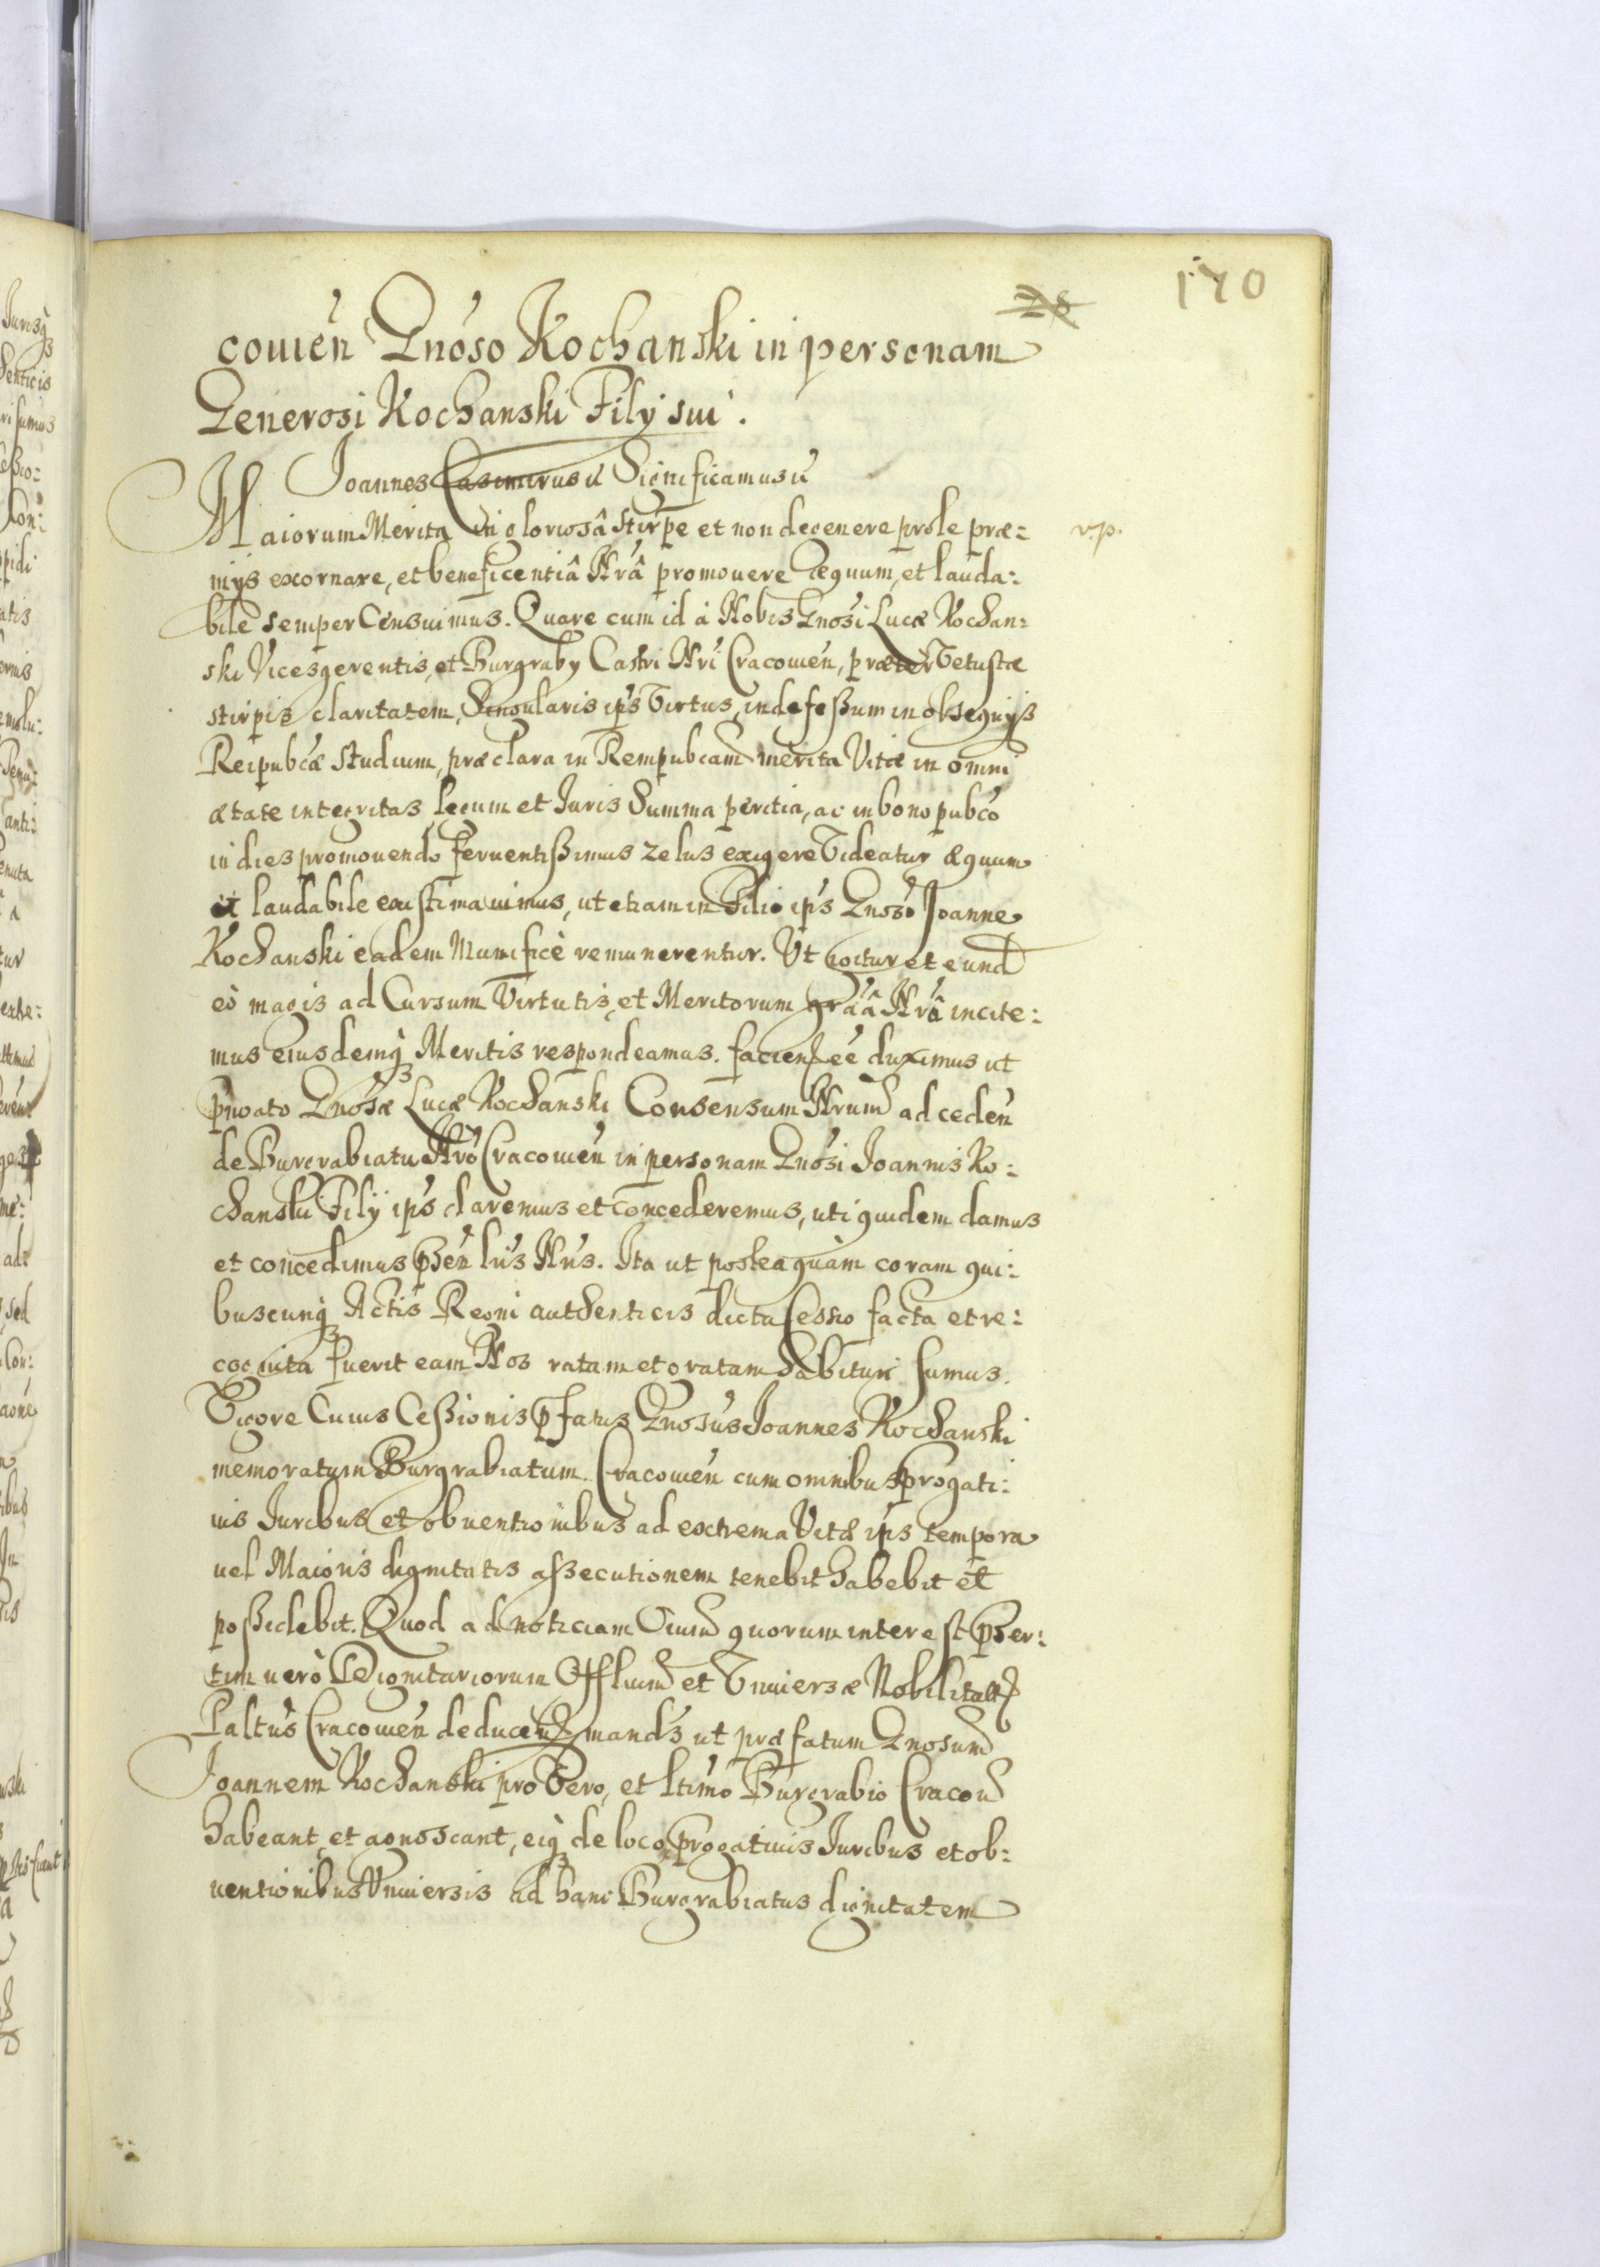 170
28
couień Gnoso Kochanski in personam
Generosi Kochanski Filÿ sui.
Joannes Casimirus ɛ̃ Significamus ɛ̃
Maiorum Merita in gloriosâ stirpe et non degenere prole præ=
v.p.
mÿs exornare, et beneficentiâ Nrâ promouere æquum, et lauda=
bile semper Censuimus. Quare cum id à Nobis Gnosi Lucæ Kochan=
ski Vicesgerentis, et Burgraby Castri Nri Cracouień, præter Vetustæ
stirpis claritatem, Singularis ips Virtus, indefeßum in obsequÿs
Reipubcæ studium, præclara in Rempubcam merita Vitæ in omni
ætate integritas Legum et Juris Summa peritia, ac in bono pubco
in dies promouendo feruentißimus zelus exigere Videatur æquum
et laudabile existimauimus, ut etiam in Filio ips Gnoso Joanne
Kochanski eadem Munificè remunerentur. Ut igitur et eund
eò magis ad Cursum Virtutis, et Meritorum grâa Nrâ incite=
mus eiusdemq3 Meritis respondeamus. facien ee duximus ut
Gnosæ Lucæ Kochanski Consensum Nrum ad ceden
de Burgrabiatu Nro Cracouień in personam Gnosi Joannis Ko=
chanski Filÿ ips daremus et concederemus, uti quidem damus
et concedimus pseń lris Nris. Ita ut posteaquàm coram qui=
buscunq3 Actis Regni authenticis dicta Cessio facta et re=
cognita fuerit eam Nos ratam et gratam habituri sumus.
Vigore Cuius Ceßionis pfatus Gnosus Joannes Kochanski
memoratum Burgrabiatum Cracouień cum omnibus progati=
uis Juribus et obuentionibus ad extrema Vitæ ips tempora
uel Maioris dignitatis aßecutionem tenebit habebit et
poßidebit. Quod ad noticiam Oium quorum interest pser=
tim uerò Dignitariorum Offlium et Vniuersæ Nobilitatis
Paltus Cracouień deducen mands ut præfatum Gnosum
Joannem Kochanski pro Vero, et Ltimo Burgrabio Cracou
habeant, et agnoscant, eiq3 de loco progatiuis Juribus et ob=
uentionibus Vniuersis ad hanc Burgrabiatus dignitatem